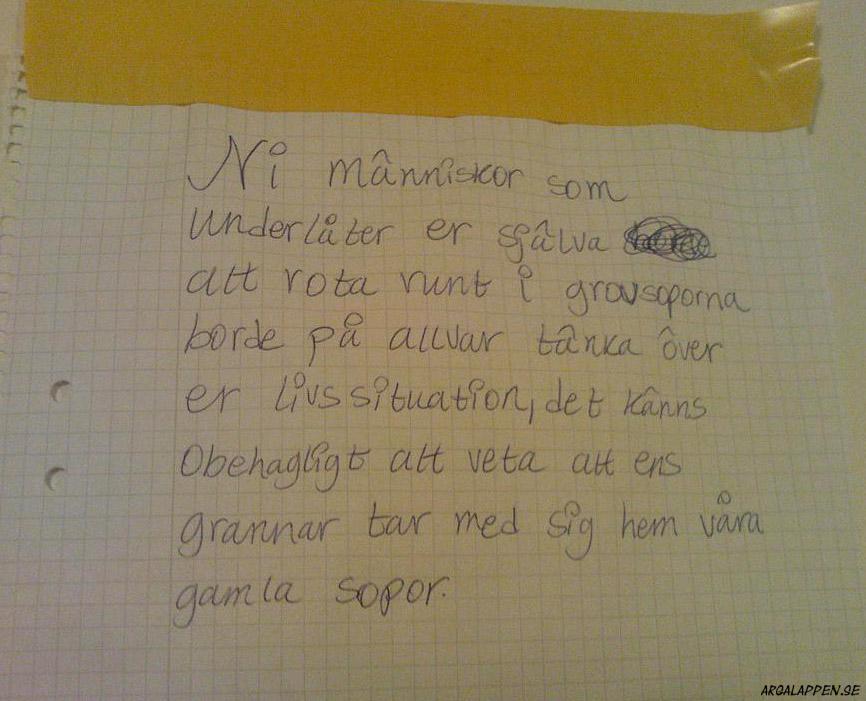 Ni människor som
underlåter er själva
att rota runt i grovsoporna
borde på allvar tänka över
er livssituation, det känns
Obehagligt att veta att ens
grannar tar med sig hem våra
gamla sopor.
ARGALAPPEN.SE